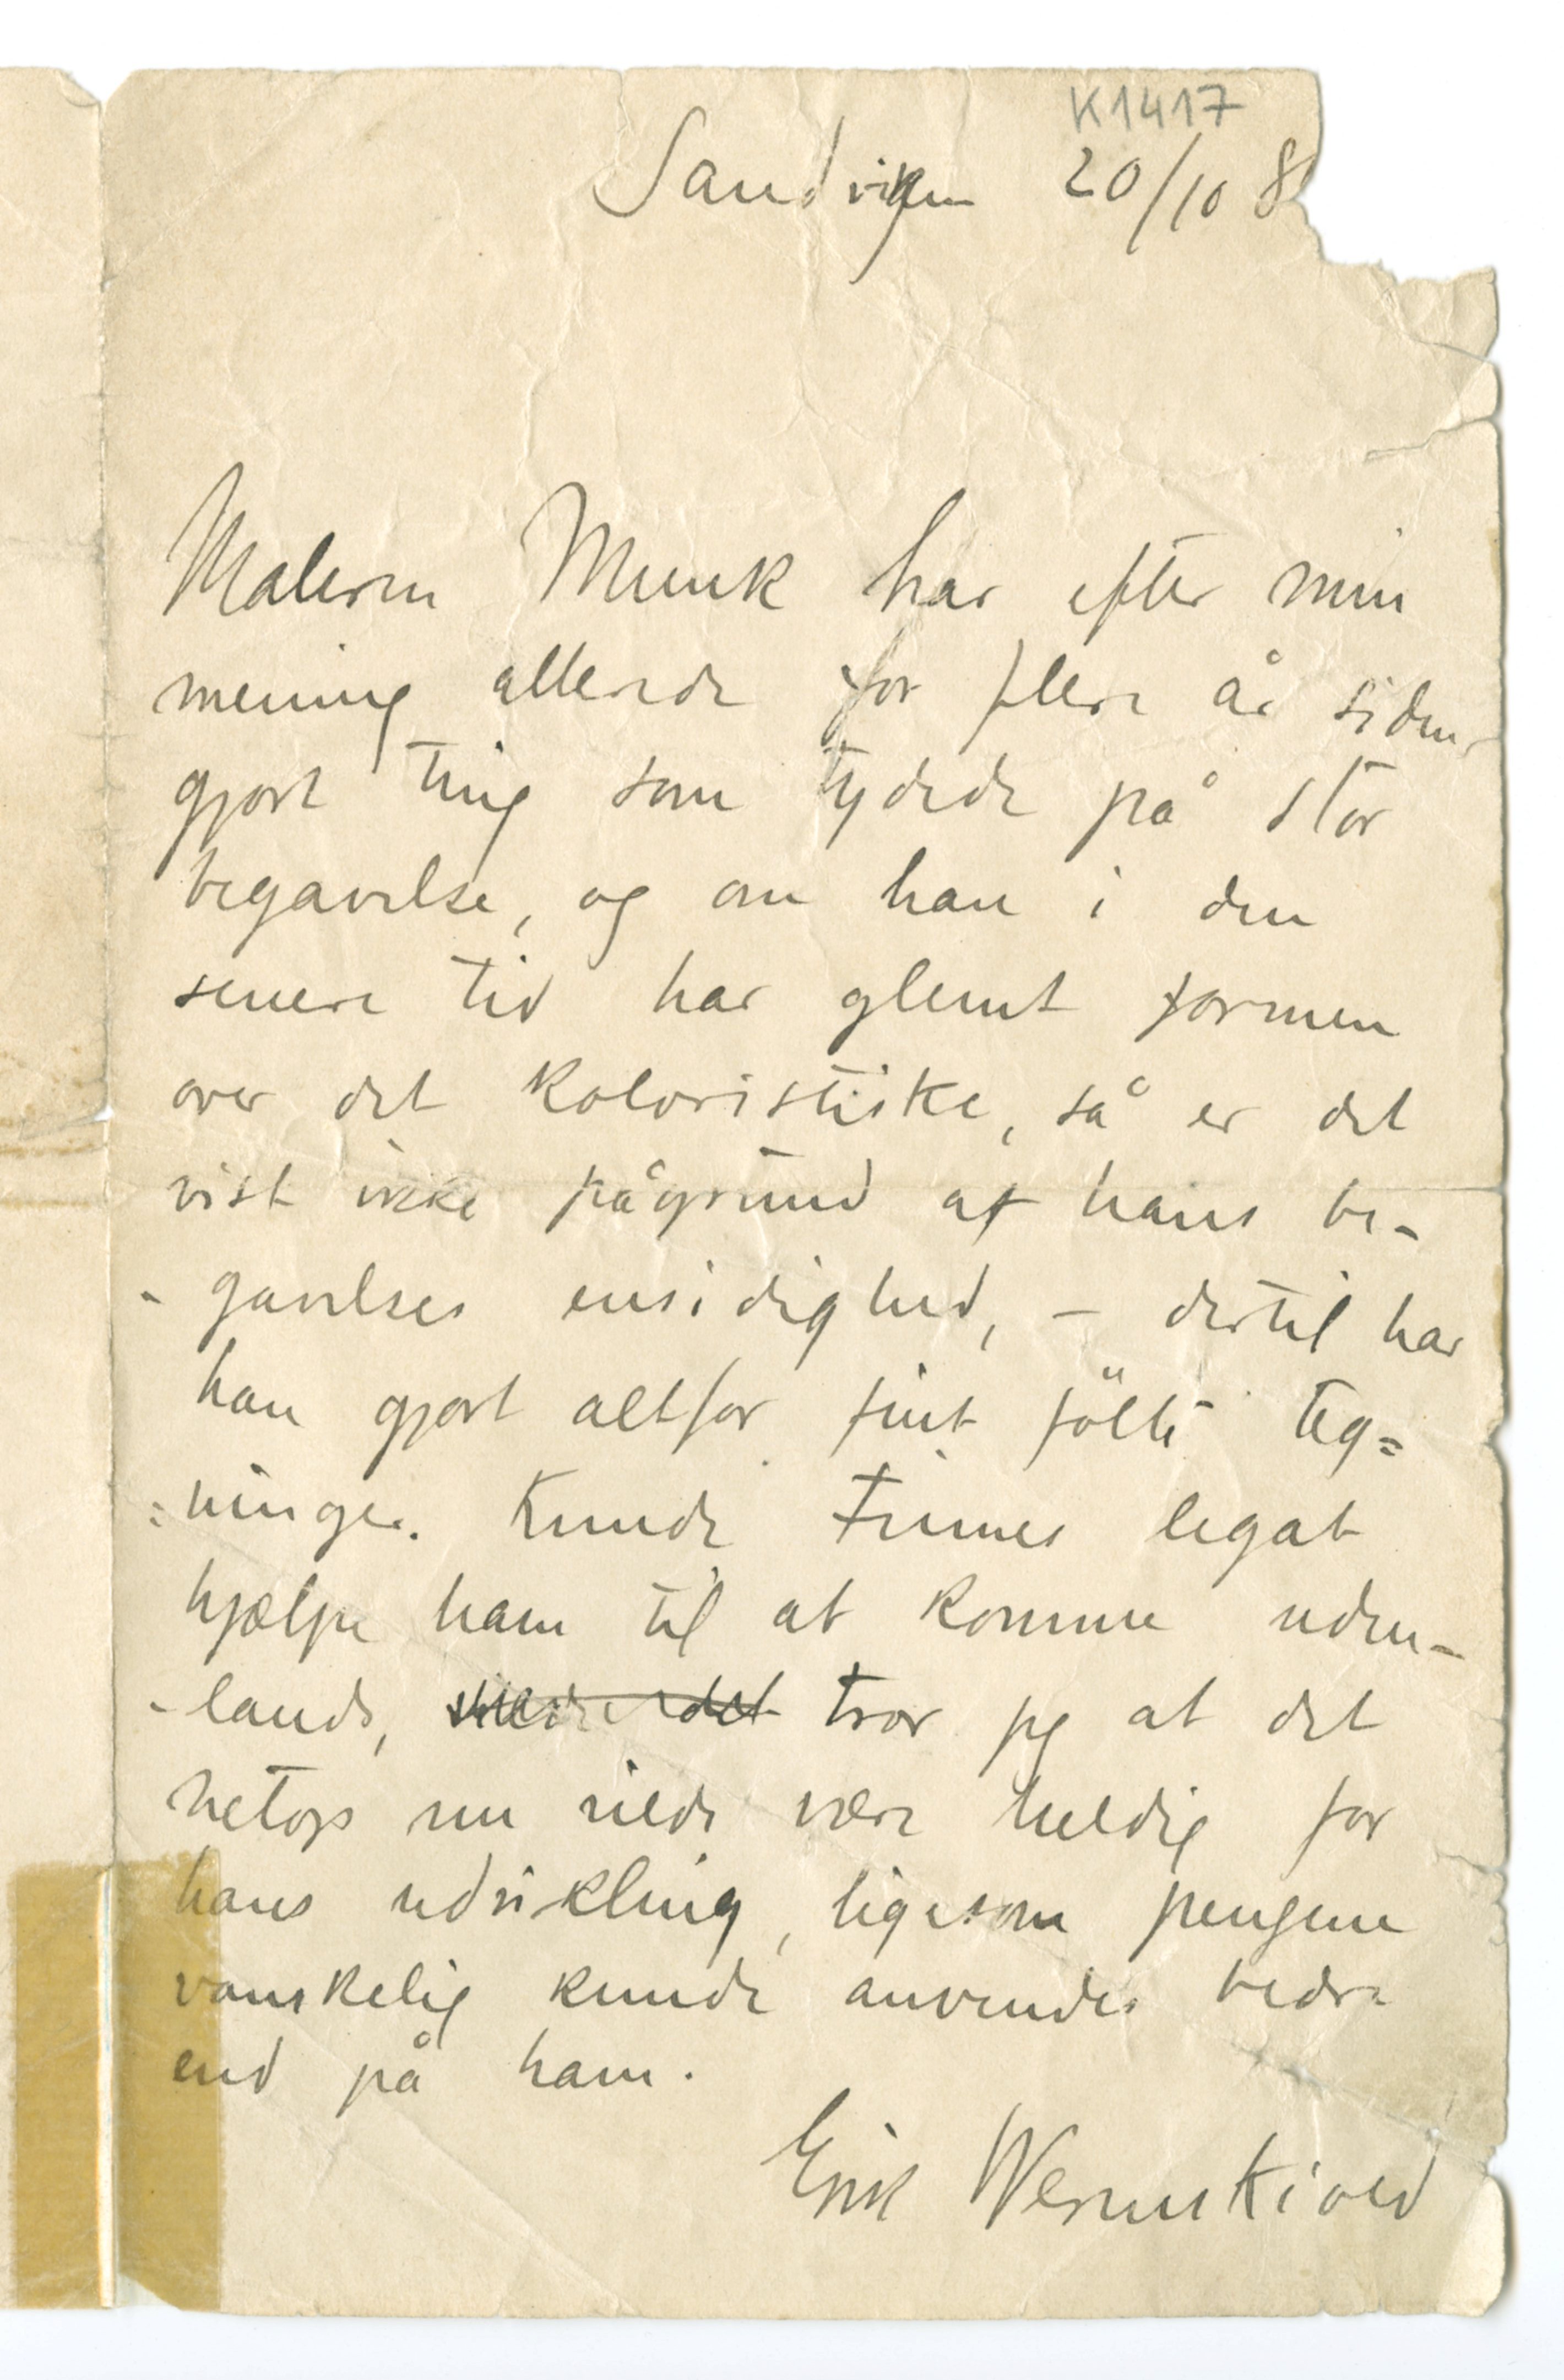 K1417
Sandviken 20/10 8
Maleren Munk har efter min
mening allerede for flere år siden
gjort ting som tydede på stor
begavelse, og om han i den
senere tid har glemt formen
over det koloristiske, så er det
vist ikke pågrund af hans be-
- gavelses ensidighed, – dertil har
han gjort altfor fint følte teg=
=ninger. Kunde Finnes legat
hjælpe ham til at komme uden-
-lands, det tror jeg at det
netop nu vilde være heldig for
hans udvikling, ligesom pengene
vanskelig kunde anvendes bedre
end på ham.
Erik Werenskiold